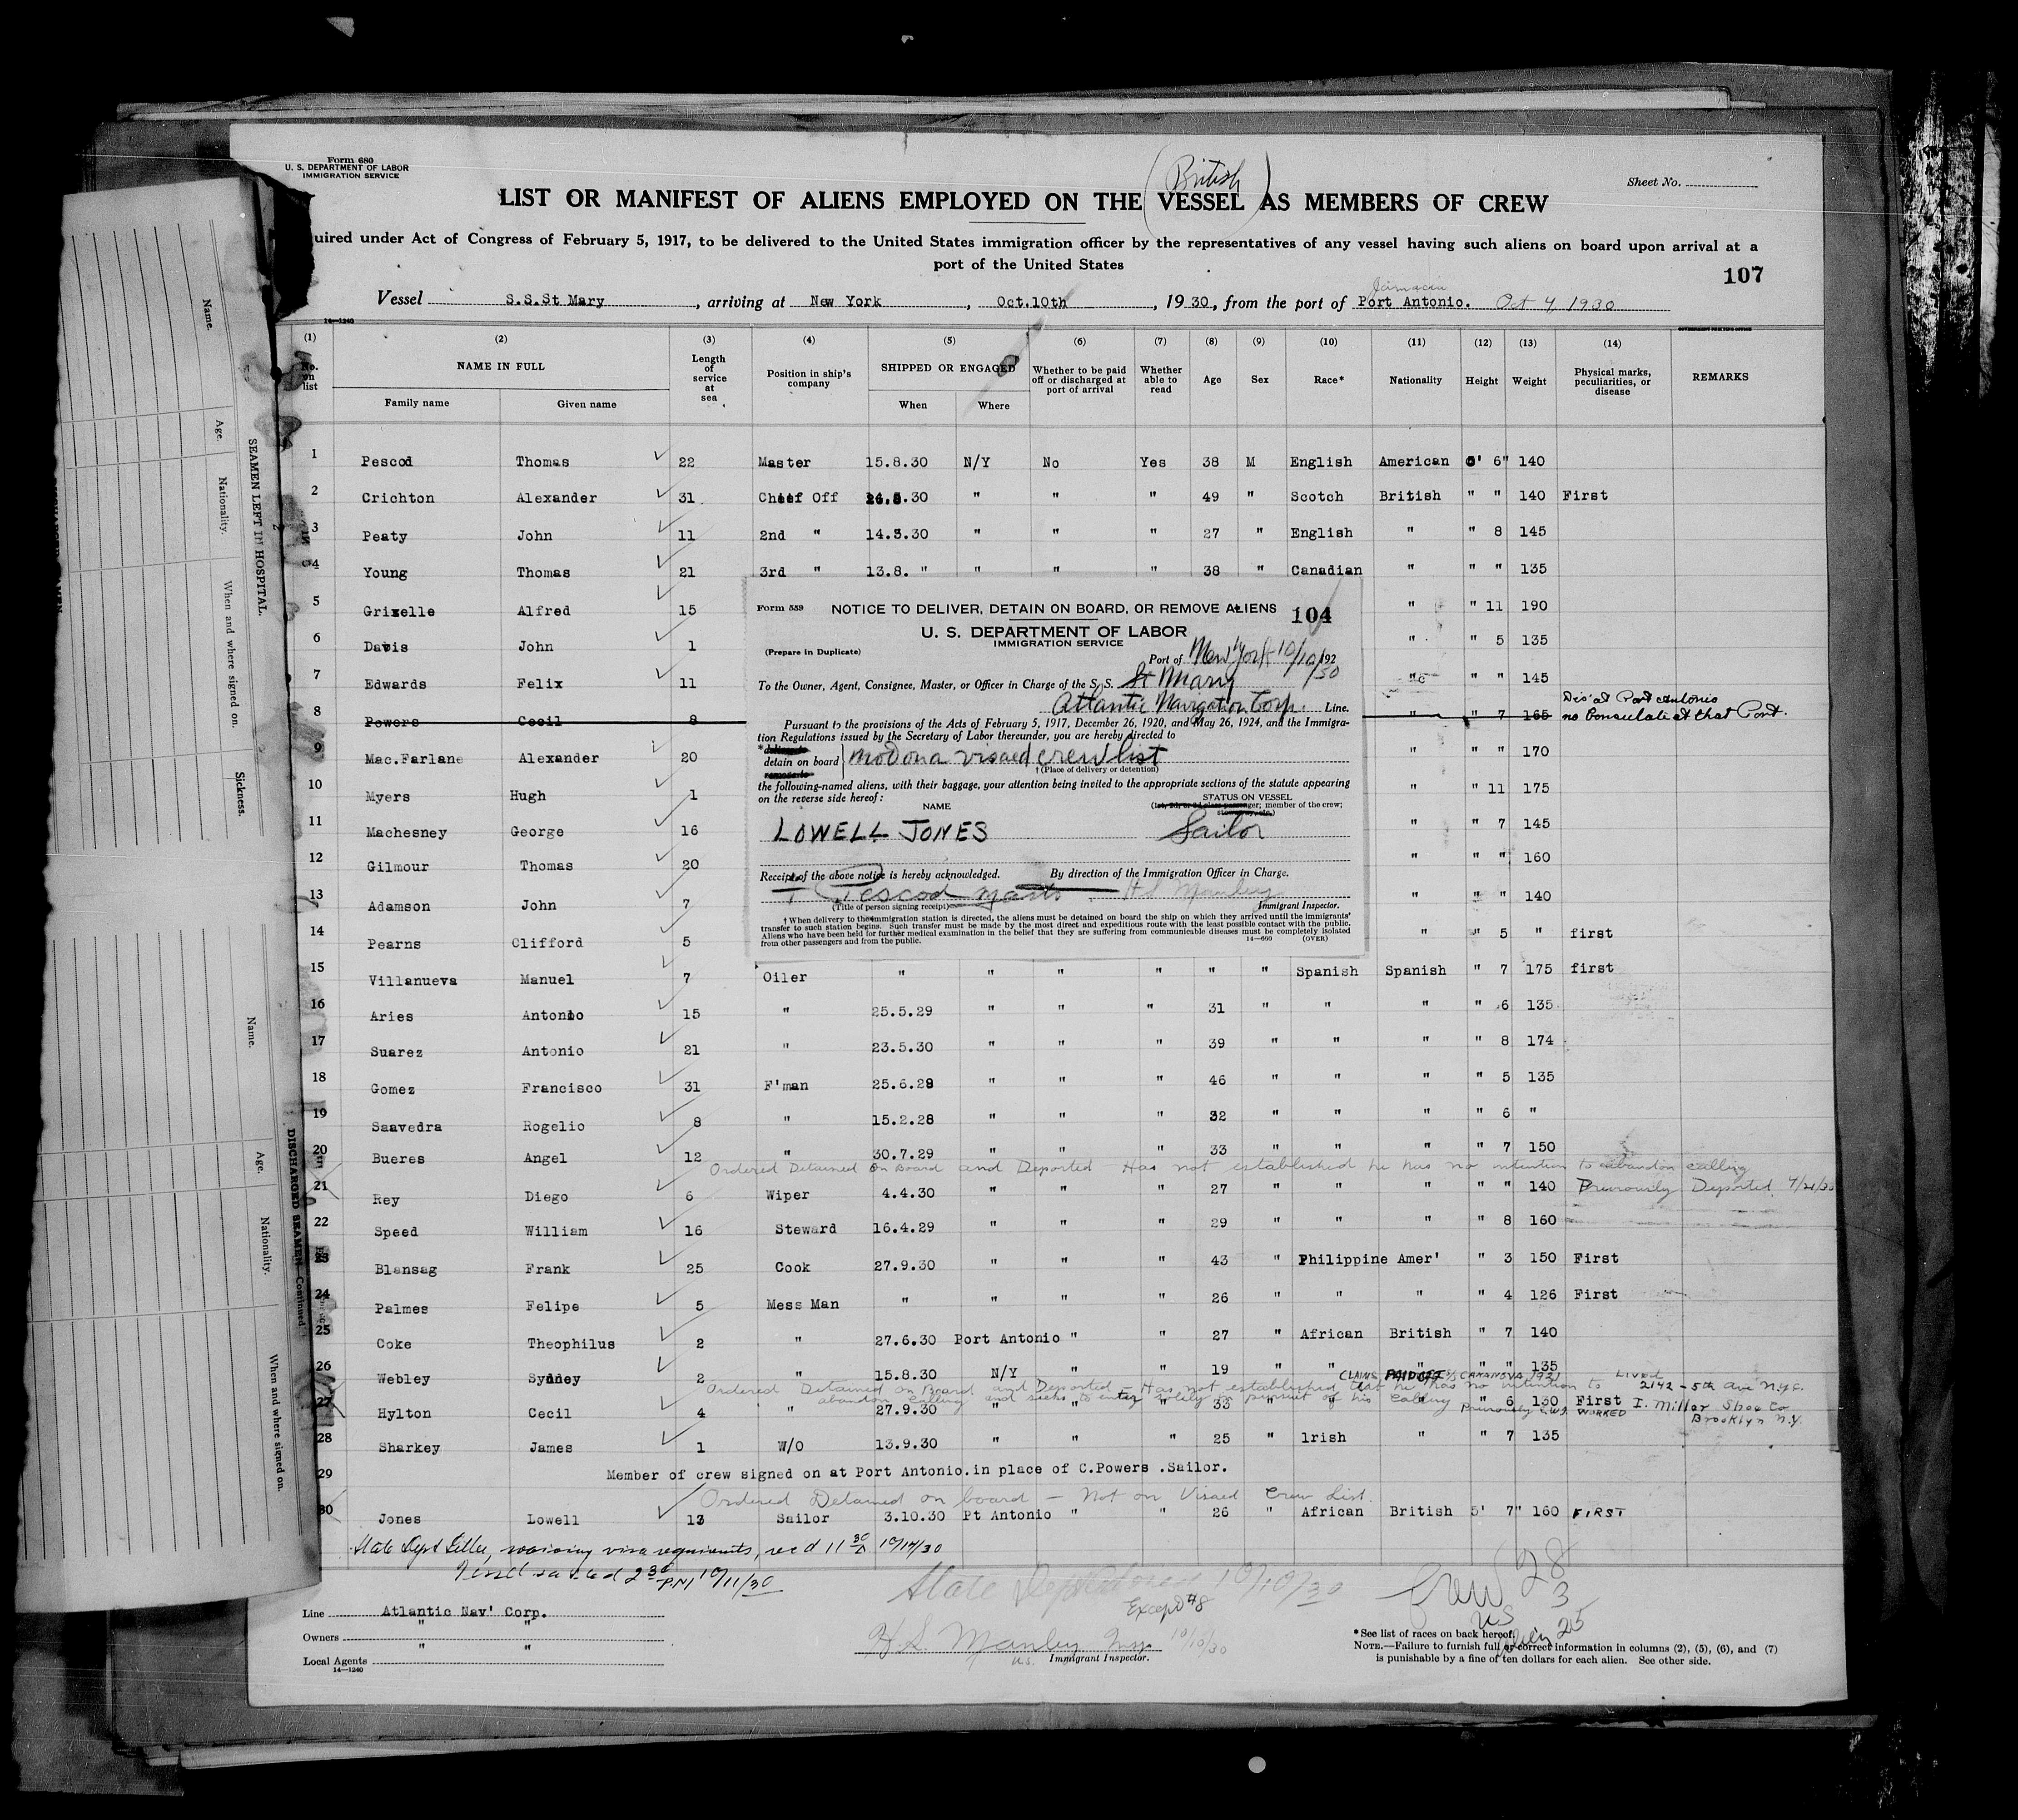 Form 680
U. S. DEPARTMENT OF LABOR
IMMIGRATION SERVICE
Sheet No.
(British)
LIST OR MANIFEST OF ALIENS EMPLOYED ON THE VESSEL AS MEMBERS OF CREW
uired under Act of Congress of February 5, 1917, to be delivered to the United States immigration officer by the representatives of any vessel having such aliens on board upon arrival at a
port of the United States
107
Jamacia
Vessel S.S.St Mary, arriving at New York, Oct.10th, 1930, from the port of Port Antonio. Oct 4, 1930
14—1240
(1) (2) (3) (4) (5) (6) (7) (8) (9) (10) (11) (12) (13) (14)
No. on list NAME IN FULL Length of service at sea Position in ship's company SHIPPED OR ENGAGED Whether to be paid off or discharged at port of arrival Whether able to read Age Sex Race* Nationality Height Weight Physical marks, peculiarities, or disease REMARKS
Family name Given name When Where
1 Pescod Thomas 22 Master 15.8.30 N/Y No Yes 38 M English American 5' 6" 140
2 Crichton Alexander 31 Chief Off .30 " " " 49 " Scotch British " " 140 First
3 Peaty John 11 2nd " 14.8.30 " " " 27 " English " " 8 145
4 Young Thomas 21 3rd " 13.8. " " " " 38 " Canadian " " " 135
5 Grixelle Alfred 15 " " 11 190
6 Davis John 1 " " 5 135
7 Edwards Felix 11 " " " 145
Dis' at Port Antonio
8 Powers Cecil 8 " " 7 165 no Consulate at that Port.
9 Mac.Farlane Alexander 20 " " " 170
10 Myers Hugh 1 " " 11 175
11 Machesney George 16 " " 7 145
12 Gilmour Thomas 20 " " " 160
13 Adamson John 7 " " " 140
14 Pearns Clifford 5 " " 5 " first
Form 559 NOTICE TO DELIVER, DETAIN ON BOARD, OR REMOVE ALIENS 104
U. S. DEPARTMENT OF LABOR
IMMIGRATION SERVICE
(Prepare in Duplicate)
Port of New York 10/10/192 30
To the Owner, Agent, Consignee, Master, or Officer in Charge of the S. S. St Mary
Atlantic Navigation Corp. Line.
Pursuant to the provisions of the Acts of February 5, 1917, December 26, 1920, and May 26, 1924, and the Immigra-
tion Regulations issued by the Secretary of Labor thereunder, you are hereby directed to
*deliver to
detain on board visaed crew list
remove to
†(Place of delivery or detention)
the following-named aliens, with their baggage, your attention being invited to the appropriate sections of the statute appearing
on the reverse side hereof:
NAME STATUS ON VESSEL
(1st, 2d, or 3d class passenger; member of the crew;
LOWELL JONES Sailor
Receipt of the above notice is hereby acknowledged. By direction of the Immigration Officer in Charge.
T Pescod Master H S Manley
(Title of person signing receipt) Immigrant Inspector.
†When delivery to the immigration station is directed, the aliens must be detained on board the ship on which they arrived until the immigrants'
transfer to such station begins. Such transfer must be made by the most direct and expeditious route with the least possible contact with the public.
Aliens who have been held for further medical examination in the belief that they are suffering from communicable diseases must be completely isolated
from other passengers and from the public. 14—660 (OVER)
15 Villanueva Manuel 7 Oiler " " " " " " Spanish Spanish " 7 175 first
16 Aries Antonio 15 " 25.5.29 " " " 31 " " " " 6 135
17 Suarez Antonio 21 " 23.5.30 " " " 39 " " " " 8 174
18 Gomez Francisco 31 F'man 25.6.29 " " " 46 " " " " 5 135
19 Saavedra Rogelio 8 " 15.2.28 " " " 32 " " " " 6 "
20 Bueres Angel 12 " 30.7.29 " " " 33 " " " " 7 150
Ordered Detained on Board and Deported Has not established he has no intention to abandon calling
21 Rey Diego 6 Wiper 4.4.30 " " " 27 " " " " " 140 Previously Deported 7/21/30
22 Speed William 16 Steward 16.4.29 " " " 29 " " " " 8 160
23 Blansag Frank 25 Cook 27.9.30 " " " 43 " Philippine Amer' " 3 150 First
24 Palmes Felipe 5 Mess Man " " " " 26 " " " " 4 126 First
25 Coke Theophilus 2 " 27.6.30 Port Antonio " " 27 " African British " 7 140
26 Webley Sydney 2 " 15.8.30 N/Y " " 19 " " " " " 135
CLAIMS PAID OFF S/S CANANOVA 1921 LIVED
Ordered Detained on Board and Deported - Has not established that he has no intention to 2142 - 5th Ave N.Y.C.
abandon calling and seeks to enter solely in pursuit of his calling
27 Hylton Cecil 4 " 27.9.30 " " " 33 " " " " 6 130 First I. Miller Shoe Co
WORKED Brooklyn N.Y.
28 Sharkey James 1 W/O 13.9.30 " " " 25 " lrish " " 7 135
29 Member of crew signed on at Port Antonio.in place of C.Powers .Sailor.
Ordered Detained on board - Not on Visaed Crew List.
30 Jones Lowell 13 Sailor 3.10.30 Pt Antonio " " 26 " African British 5' 7" 160 FIRST
State Dept Letter, waiving visa requirements, rec'd 11 30 A 10/14/30
Vessel sailed 2 30 PM 10/11/30
State Dept 10/10/30
Except #8
Crew 28
3
US
Alien 25
Line Atlantic Nav' Corp.
Owners " "
Local Agents " "
14—1240
H.S. Manley Insp. 10/10/30
U.S. Immigrant Inspector.
*See list of races on back hereof.
NOTE.—Failure to furnish full or correct information in columns (2), (5), (6), and (7)
is punishable by a fine of ten dollars for each alien. See other side.
SEAMEN LEFT IN HOSPITAL.
Name.
Age.
Nationality.
When and where signed on.
Sickness.
DISCHARGED SEAMEN—Continued
Name.
Age.
Nationality.
When and where signed on.